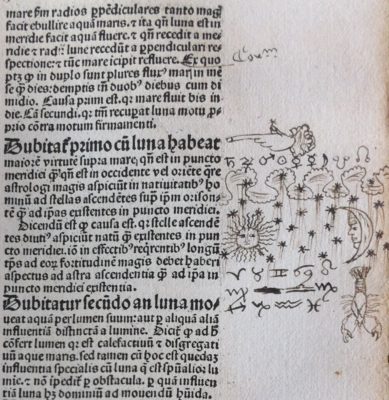 mare ꝑm radios ꝑpẽdiculares tanto mag⁹
facit ebullire aquã maris. ⁊ ita qñ luna est in
meridie facit aquã fluere. ⁊ qñ recedit a me-
ridie ⁊ rad⁹: lune recedũt a ꝑpendiculari re-
spectione: ⁊ tũc mare icipit refluere. Ex quo
in duplo sunt plures flux⁹ maris in mẽ
se dies: demptis in duob⁹ diebus cum di
midio. Causa primi est. qꝛ mare fluit bis in
die. Cã secundi. qꝛ tm̃ recuꝑat luna motu ꝓ
prio cõtra motum firmamenti.
Dubitat primo cũ luna habeat
maiorẽ virtutẽ supra mare, qñ est in puncto
meridici qñ est in occidente vel oriẽte qre
astrologi magis aspiciũt in natiuitatib⁹ ho
minũ ad stellas ascendẽtes suꝑ ipm orison-
tẽ ad ipas existentes in puncto meridici.
Dicendũ est causa est. qꝛ stelle ascendẽ
tes diuti⁹ aspiciũt natũ existentes in pun
cto meridici. iõ in effectib⁹ reqrentib⁹ longũ
tps ad eoꝝ fortitudinẽ magis debet haberi
aspectus ad astra ascendentia ad ipa in
puncto meridici existentia.
Dubitatur secũdo an luna mo-
ueat aqua per lumen suum: aut ꝑ aliquã aliã
influentiã distinctã a lumine. Dicit ad h
cõfert lumen qꝛ est calefactiuũ ⁊ disgregati
uũ aque maris. sed tamen cũ hoc est quedaz
influentia specialis cũ luna est spũalior lu
mine. ⁊ nõ ipedit ꝑ obstacula. ꝑ quã influen
tiã luna hz dominiũ ad mouendũ hũida.
♄ ♃ ♂ ☉ ♀ ☿ ☽
♈ ♉ ♊ ♋ ♌ ♍
♎ ♏ ♐ ♑ ♒ ♓